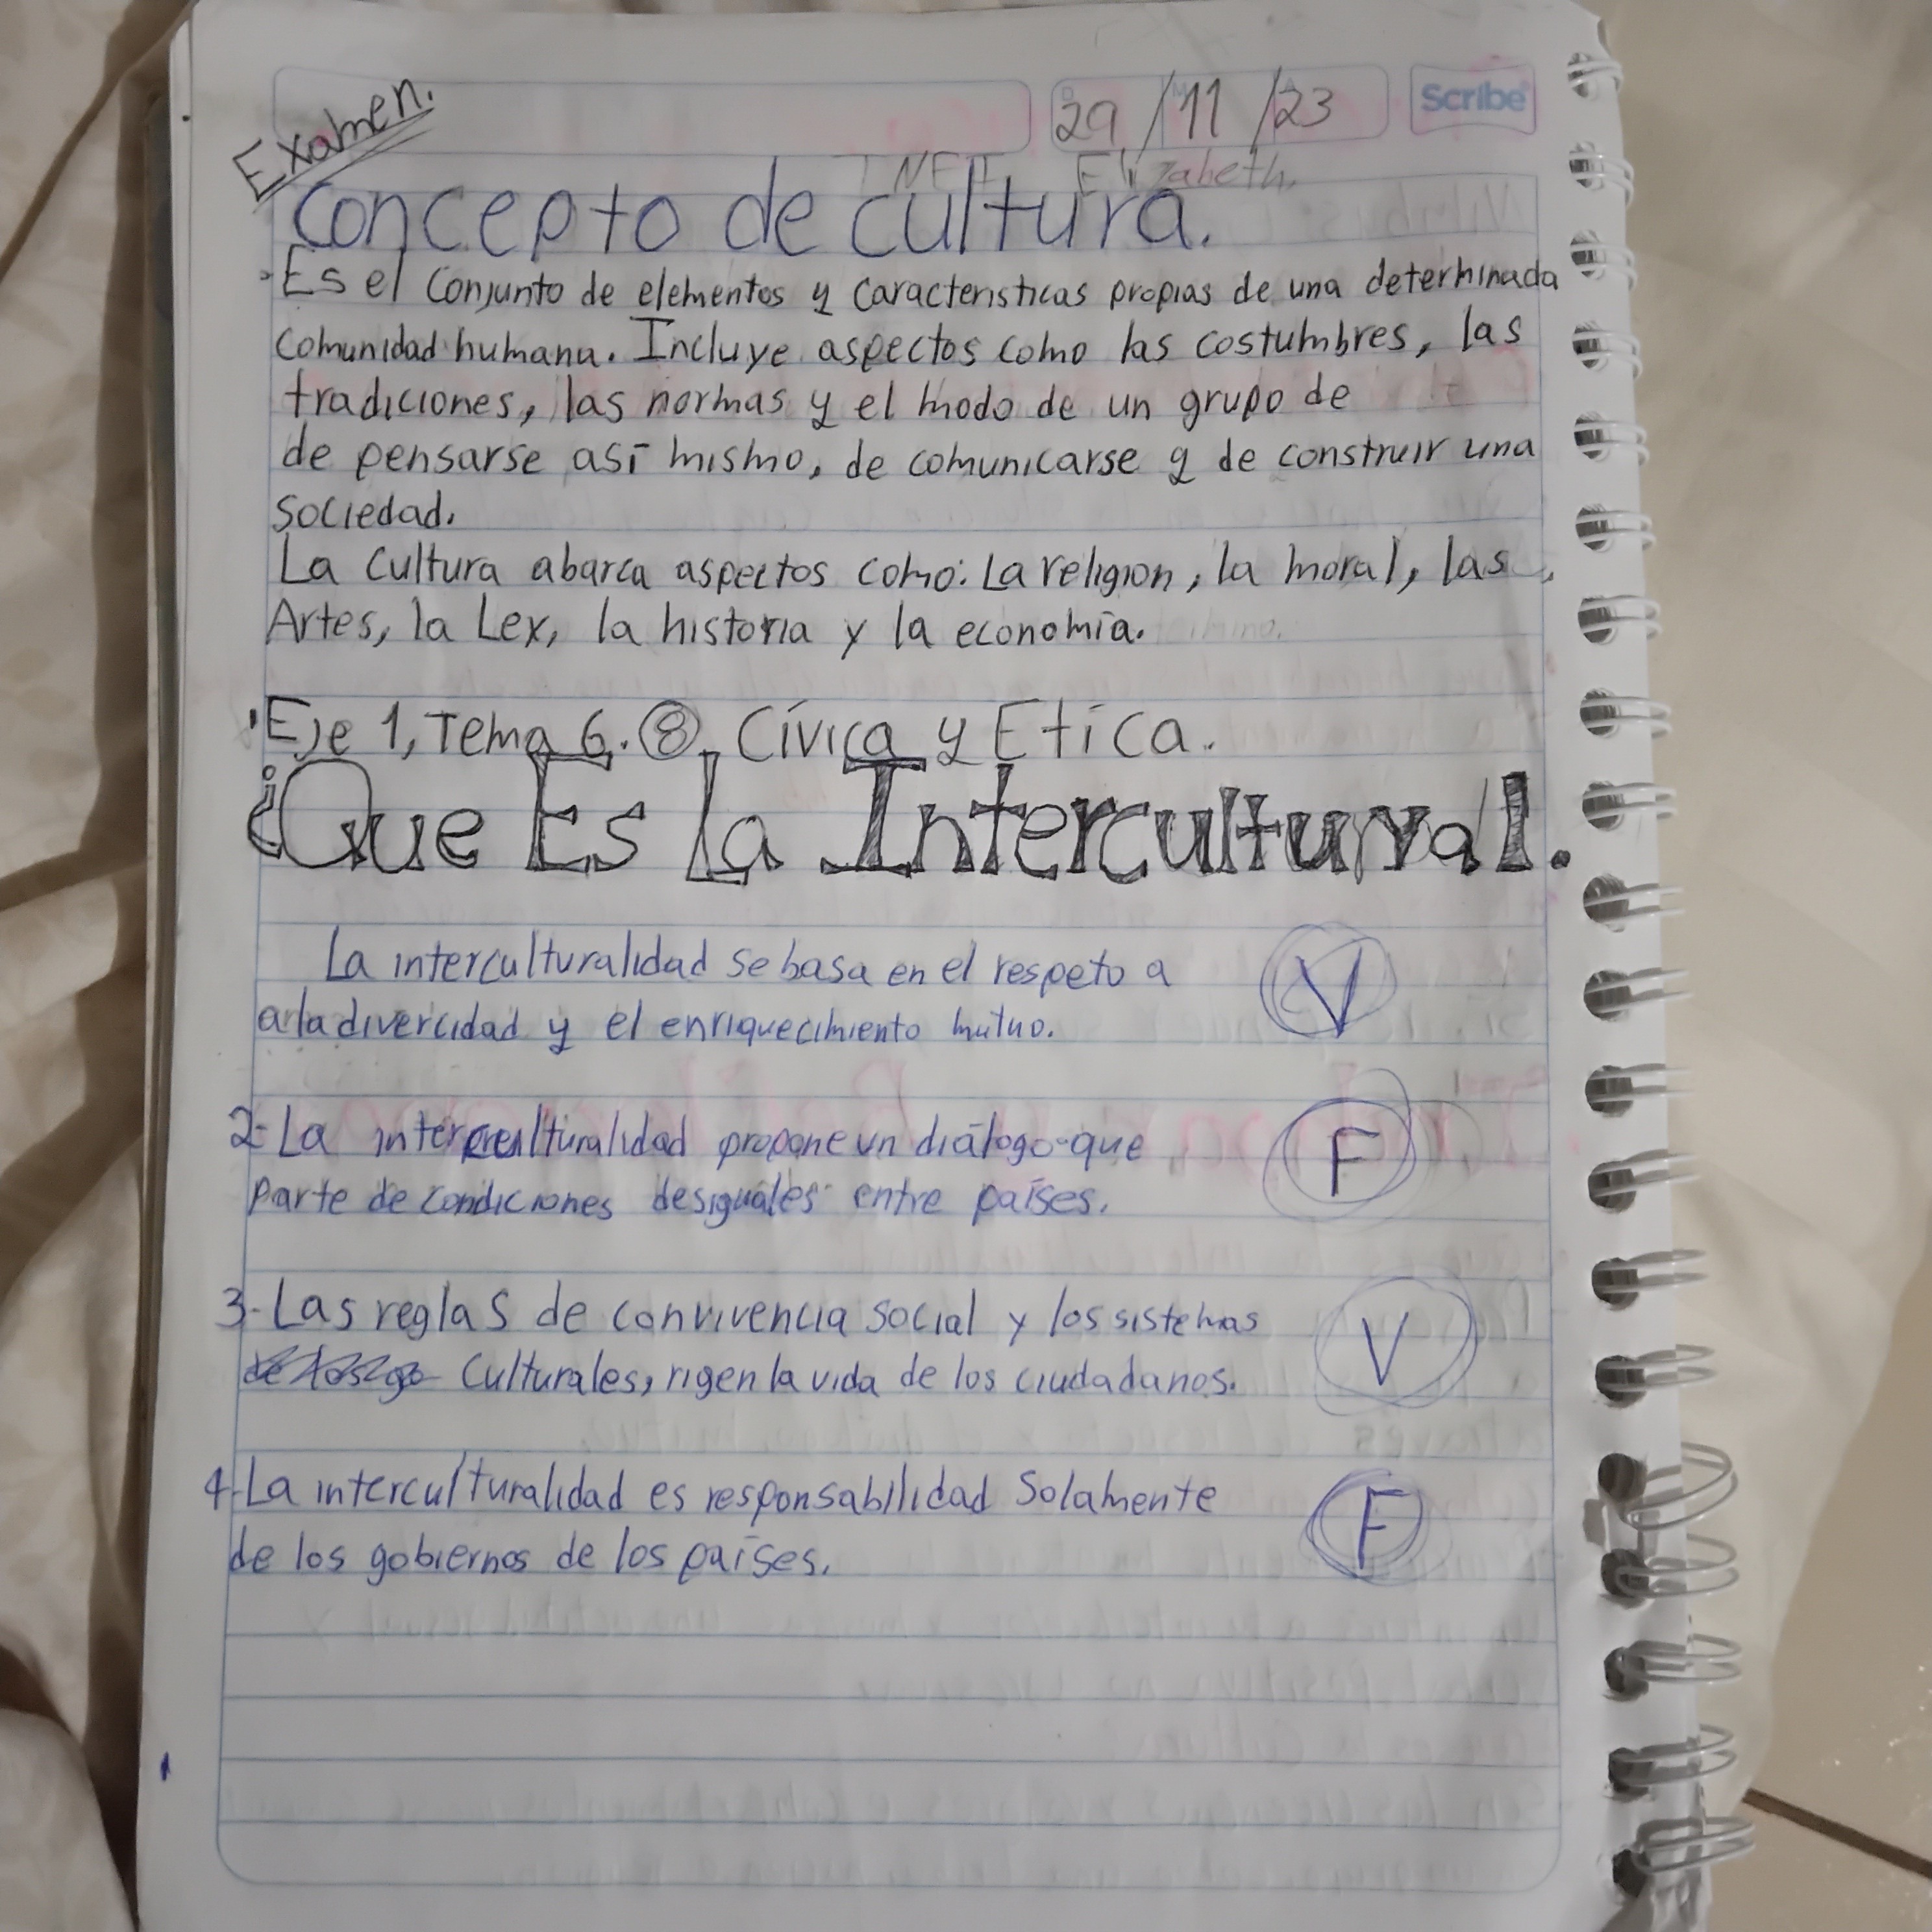 Examen.
29/11/23
Scribe
Elizabeth.
Concepto de cultura.
·Es el Conjunto de elementos y Caracteristicas propias de una determinada
Comunidad humana. Incluye aspectos como las costumbres, las
tradiciones, las normas y el modo de un grupo de
de pensarse así mismo, de comunicarse y de construir una
sociedad.
La Cultura abarca aspectos como: La religion, la moral, las
Artes, la Lex, la historia y la economía.
·Eje 1, Tema 6. ⑧. Cívica y Etica.
¿Que Es La Intercultural.
La interculturalidad se basa en el respeto a
a la divercidad y el enriquecimiento mutuo. V
2- La interculturalidad propone un diálogo que
Parte de condiciones desiguales entre países. F
3- Las reglas de convivencia social y los sistemas
Culturales, rigen la vida de los ciudadanos. V
4- La interculturalidad es responsabilidad Solamente
de los gobiernos de los países. F